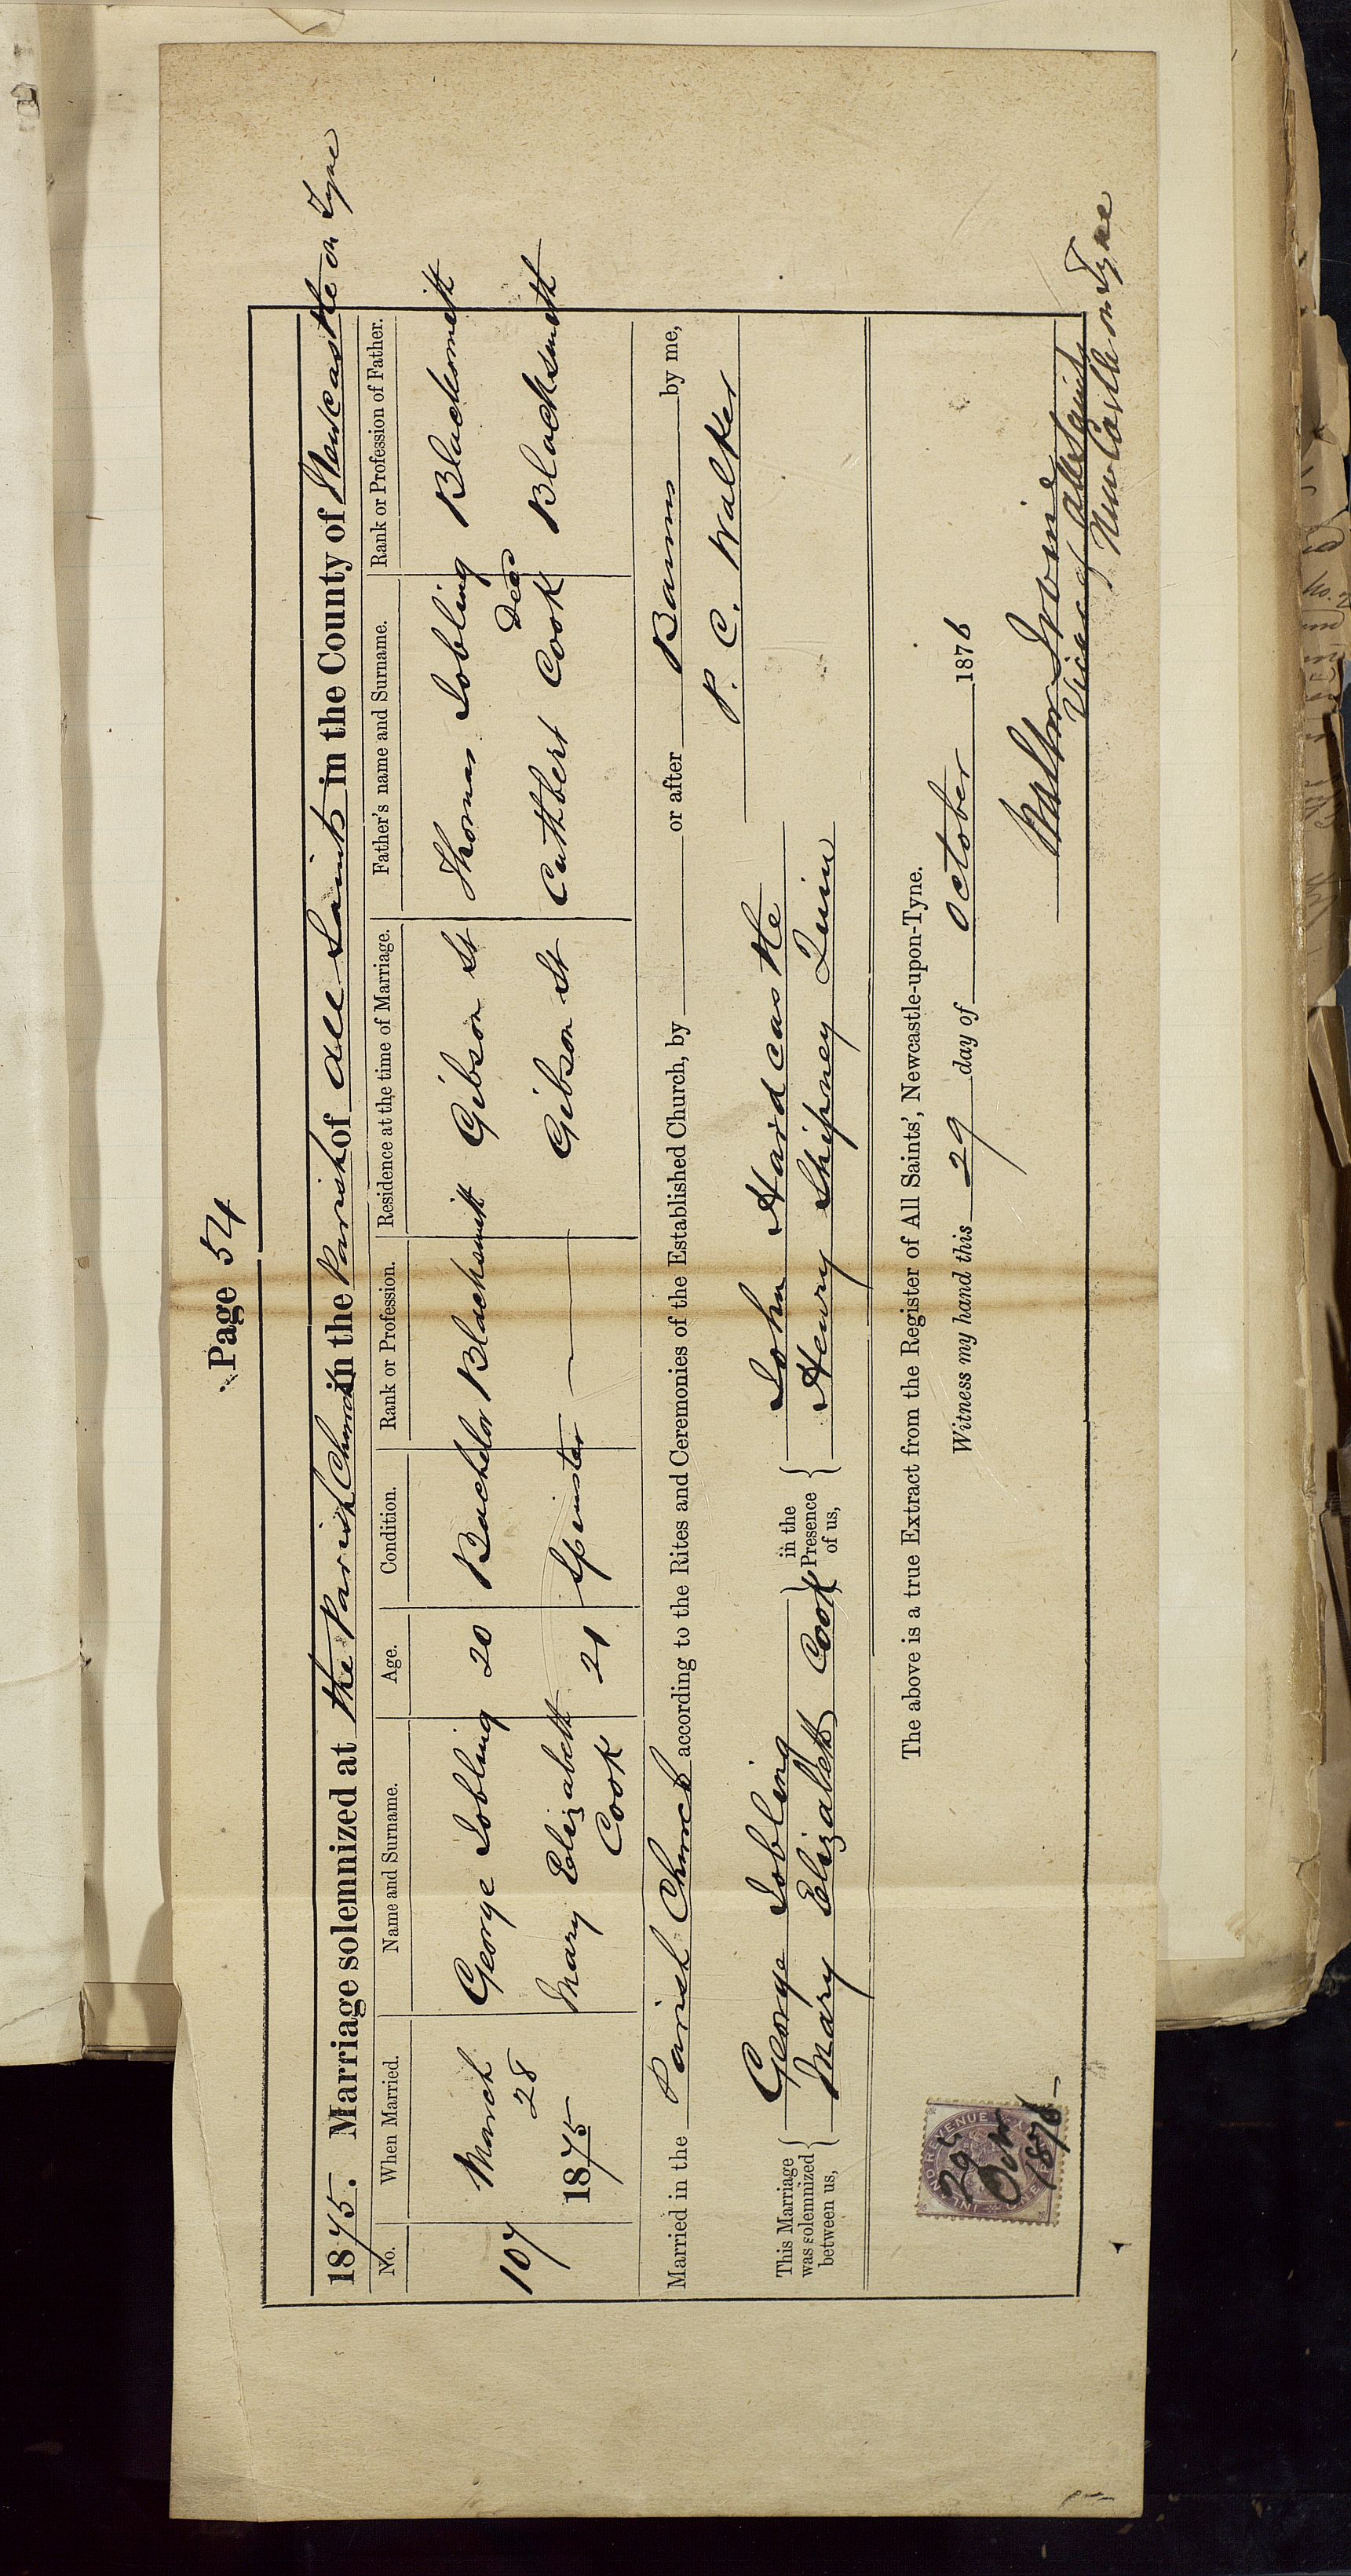 Page 54
1875. Marriage solemnized at the Parish Church in the Parish of All Saints in the County of Newcastle on Tyne
No. When Married. Name and Surname. Age. Condition. Rank or Profession. Residence at the time of Marriage. Father's name and Surname. Rank or Profession of Father.
107 March 28 1875 George Jobling 20 Bachelor Blacksmith Gibson St Thomas Jobling Blacksmith
Mary Elizabeth Cook 21 Spinster — Gibson St Cuthbert Cook Decd Blacksmith
Married in the Parish Church according to the Rites and Ceremonies of the Established Church, by or after Banns by me,
P. C. Walker
This Marriage was solemnized between us, George Jobling Mary Elizabeth Cook in the Presence of us, John Hardcastle Henry Shipney Quin
The above is a true Extract from the Register of All Saints', Newcastle-upon-Tyne.
Witness my hand this 29 day of October 1876
Irvine
Vicar of All Saints
Newcastle on Tyne
INLAND REVENUE
29
1876